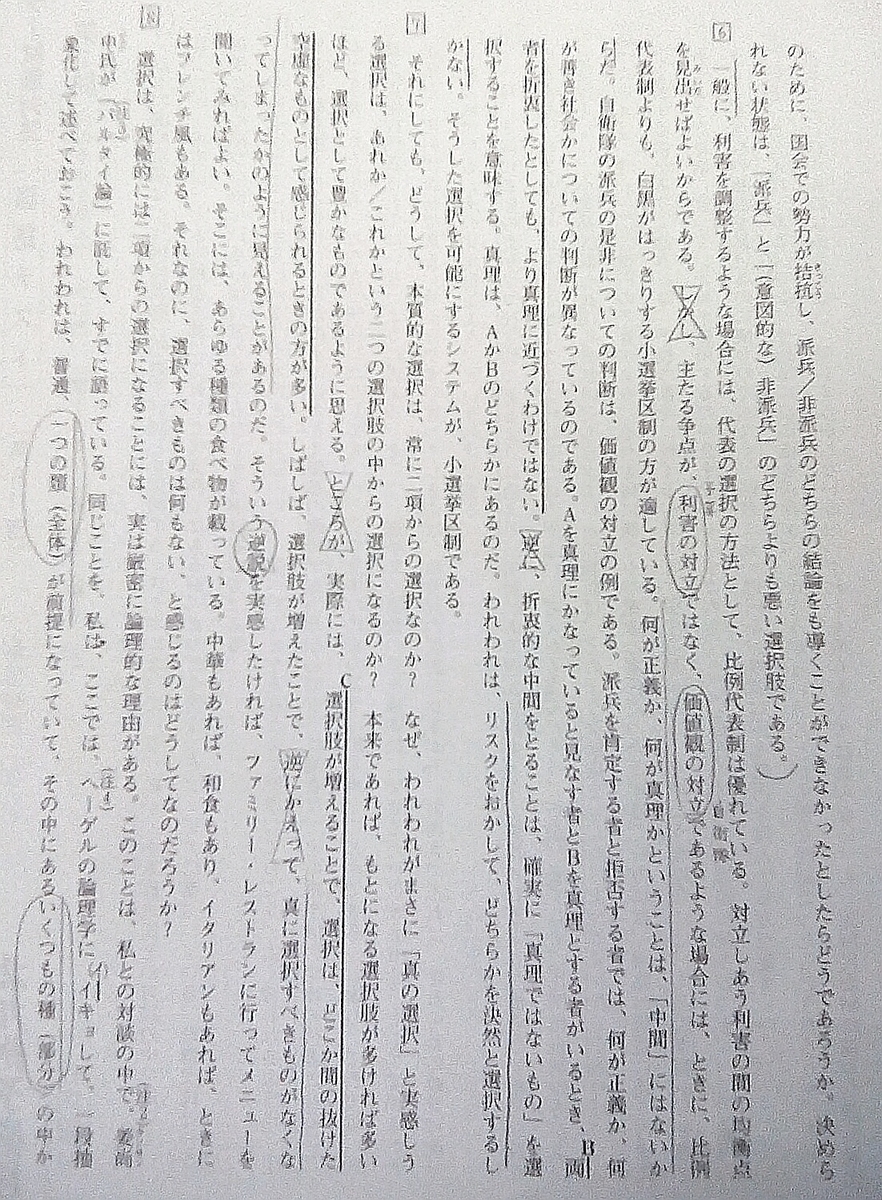 のために、国会での勢力が拮抗し、派兵／非派兵のどちらの結論をも導くことができなかったとしたらどうであろうか。決めら
れない状態は、「派兵」と「（意図的な）非派兵」のどちらよりも悪い選択肢である。）
6 一般に、利害を調整するような場合には、代表の選択の方法として、比例代表制は優れている。対立しあう利害の間の均衡点
を見出せばよいからである。しかし、主たる争点が、利害の対立ではなく、価値観の対立であるような場合には、ときに、比例
代表制よりも、白黒がはっきりする小選挙区制の方が適している。何が正義か、何が真理かということは、「中間」にはないか
らだ。自衛隊の派兵の是非についての判断は、価値観の対立の例である。派兵を肯定する者と拒否する者では、何が正義か、何
が善き社会かについての判断が異なっているのである。Aを真理にかなっていると見なす者とBを真理とする者がいるとき、B両
者を折衷したとしても、より真理に近づくわけではない。逆に、折衷的な中間をとることは、確実に「真理ではないもの」を選
択することを意味する。真理は、AかBのどちらかにあるのだ。われわれは、リスクをおかして、どちらかを決然と選択するし
かない。そうした選択を可能にするシステムが、小選挙区制である。
7 それにしても、どうして、本質的な選択は、常に二項からの選択なのか？ なぜ、われわれがまさに「真の選択」と実感しう
る選択は、あれか／これかという二つの選択肢の中からの選択になるのか？ 本来であれば、もとになる選択肢が多ければ多い
ほど、選択として豊かなものであるように思える。ところが、実際には、C選択肢が増えることで、選択は、どこか間の抜けた
空虚なものとして感じられるときの方が多い。しばしば、選択肢が増えたことで、逆にかえって、真に選択すべきものがなくな
ってしまったかのように見えることがあるのだ。そういう逆説を実感したければ、ファミリー・レストランに行ってメニューを
開いてみればよい。そこには、あらゆる種類の食べ物が載っている。中華もあれば、和食もあり、イタリアンもあれば、ときに
はフレンチ風もある。それなのに、選択すべきものは何もない、と感じるのはどうしてなのだろうか？
8 選択は、究極的には二項からの選択になることには、実は厳密に論理的な理由がある。このことは、私との対談の中で、
氏が「論」に託して、すでに語っている。同じことを、私は、ここでは、ヘーゲルの論理学に（イ）イキョして、一段抽
象化して述べておこう。われわれは、普通、一つの類（全体）が前提になっていて、その中にあるいくつもの種（部分）の中か